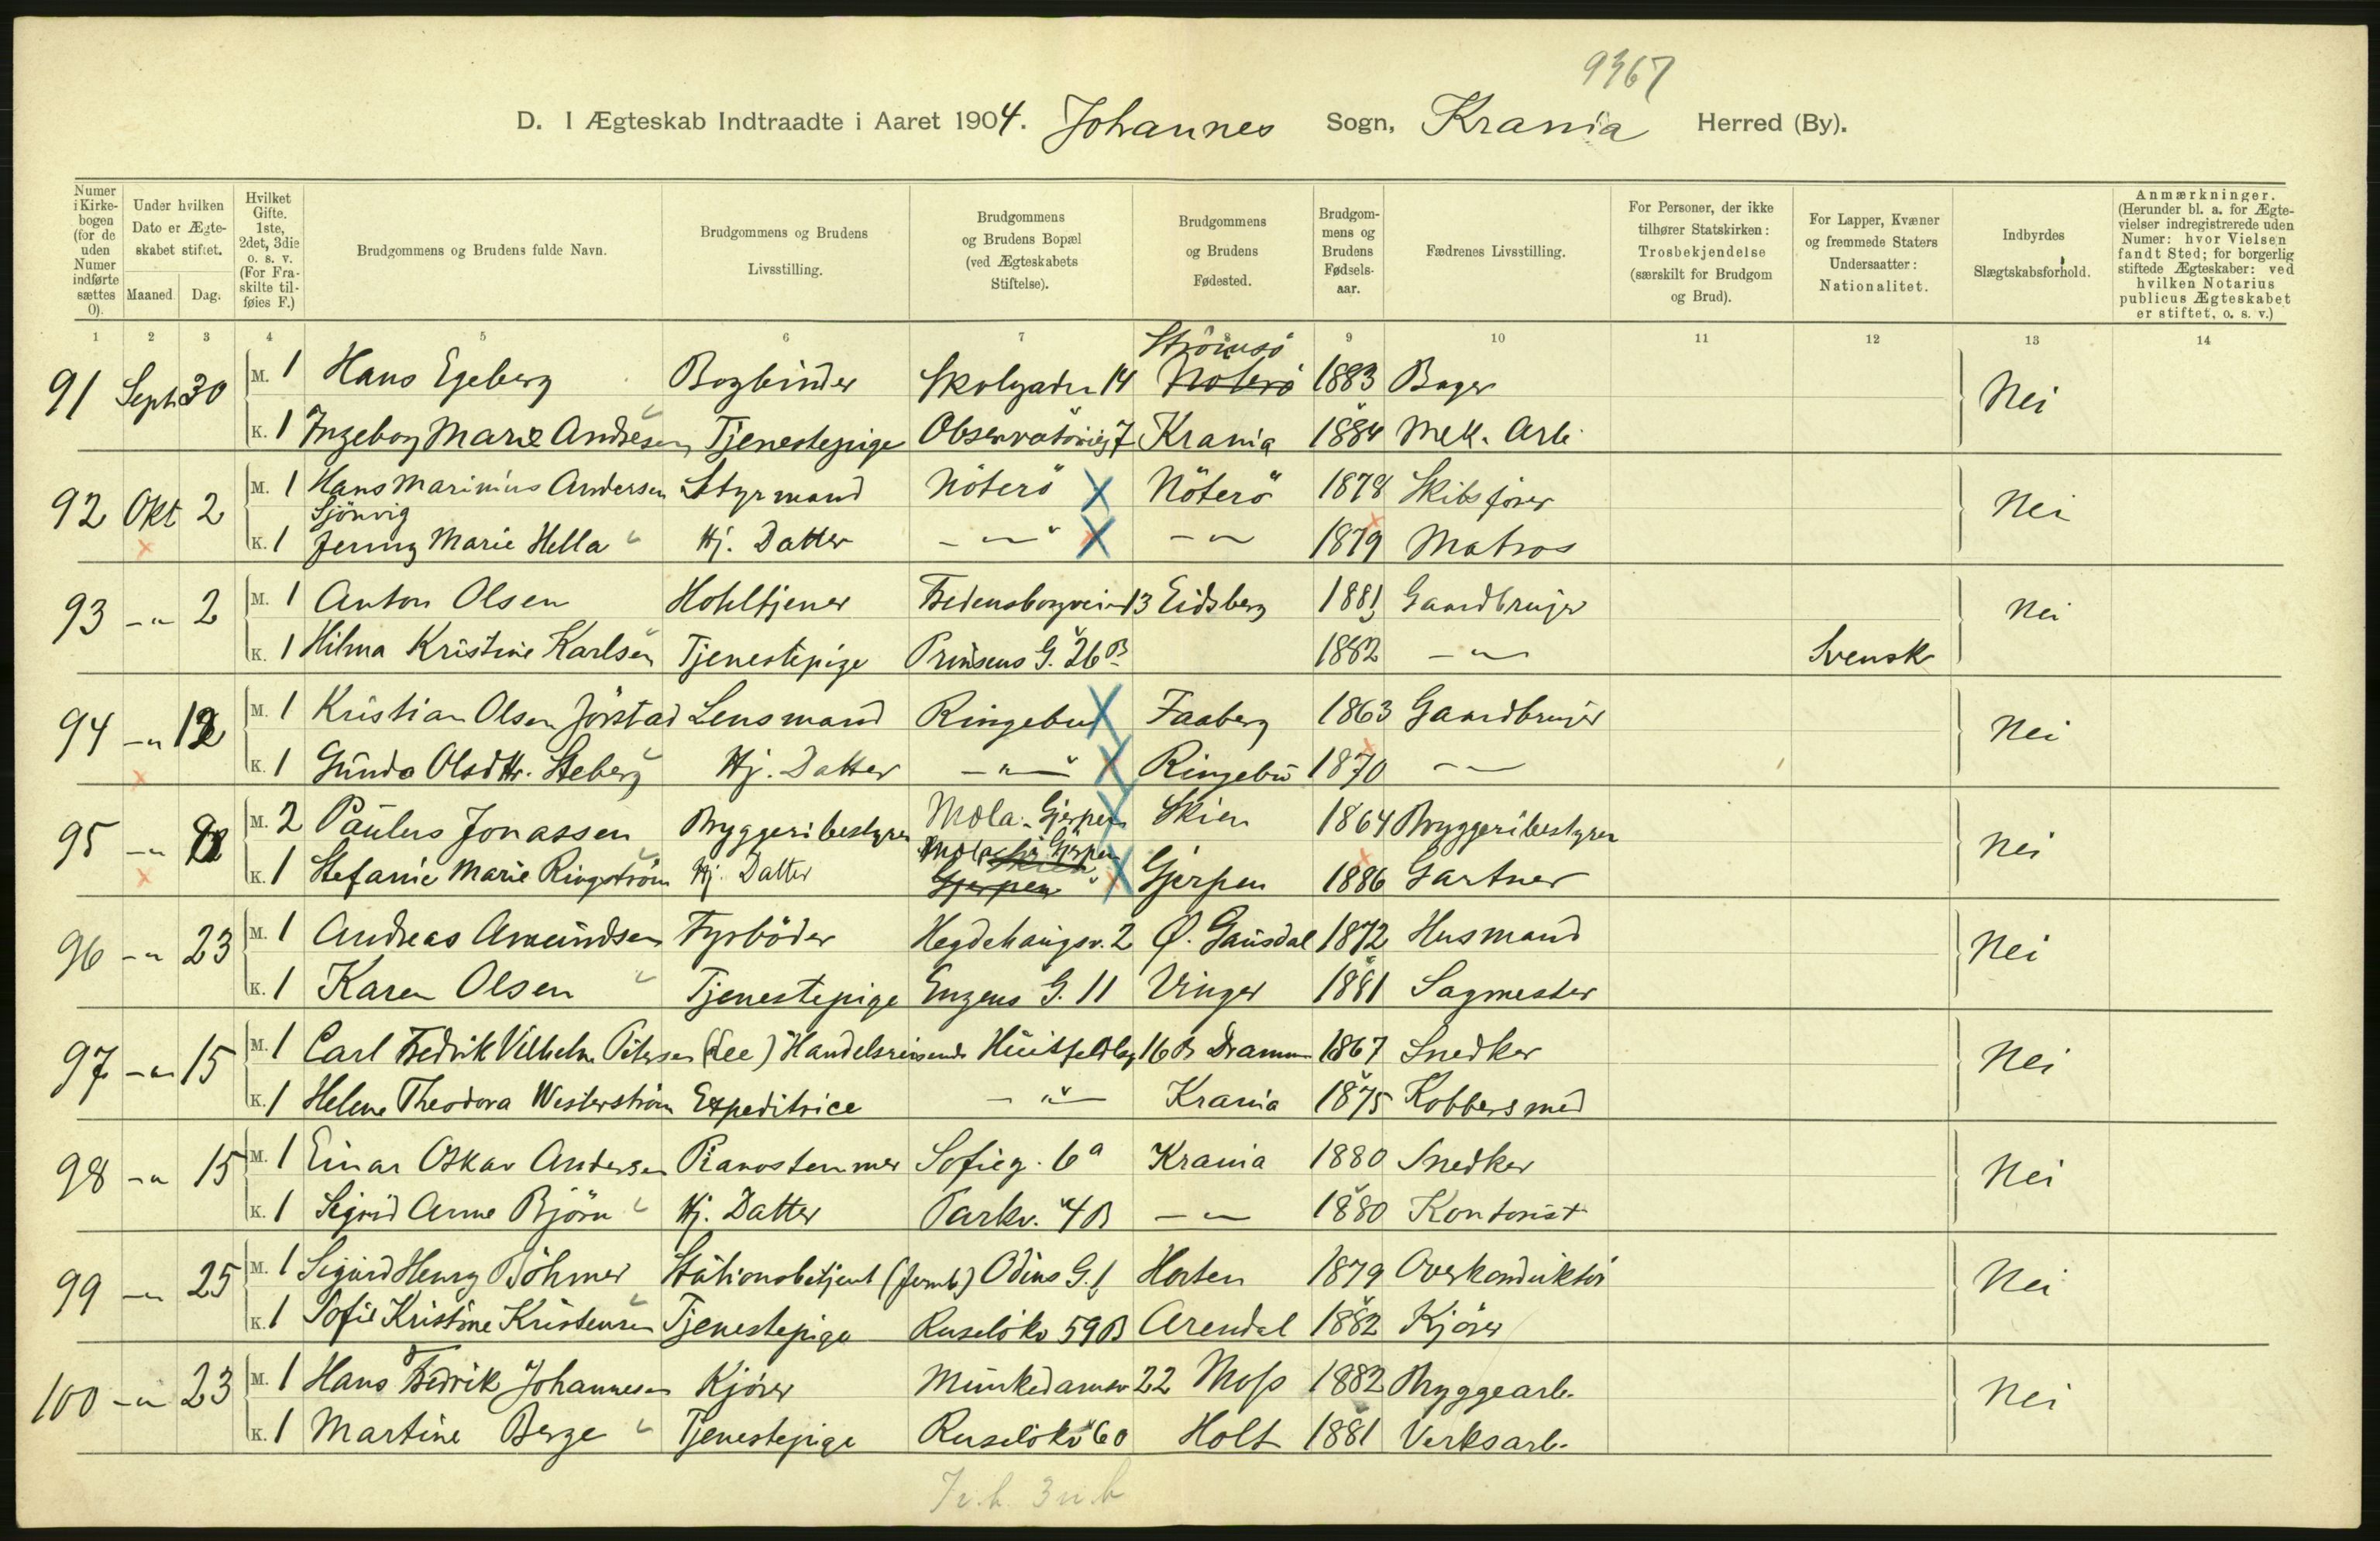 9367
D. I Ægteskab Indtraadte i Aaret 1904. Johannes Sogn, Krania Herred (By).
Numer i Kirke-bogen (for de uden Numer indførte sættes 0). Under hvilken Dato er Ægte-skabet stiftet. Maaned Dag. Hvilket Gifte. 1ste, 2det, 3die o. s. v. (For Fra-skilte til-føies F.) Brudgommens og Brudens fulde Navn. Brudgommens og Brudens Livsstilling. Brudgommens og Brudens Bopæl (ved Ægteskabets Stiftelse). Brudgommens og Brudens Fødested. Brudgom-mens og Brudens Fødsels-aar. Fædrenes Livsstilling. For Personer, der ikke tilhører Statskirken: Trosbekjendelse (særskilt for Brudgom og Brud). For Lapper, Kvæner og fremmede Staters Undersaatter: Nationalitet. Indbyrdes Slægtskabsforhold. Anmærkninger. (Herunder bl. a. for Ægte-vielser indregistrerede uden Numer: hvor Vielsen fandt Sted; for borgerlig stiftede Ægteskaber: ved hvilken Notarius publicus Ægteskabet er stiftet, o. s. v.)
1 2 3 4 5 6 7 8 9 10 11 12 13 14
Strömsö
91 Sept 30 M. 1 Hans Egeberg Bogbinder Skolgaden 14 Nöterö 1883 Bager Nei
K. 1 Ingeborg Marie Andresen Tjenestepige Observatorieg 7 Krania 1884 Mek. Arb.
92 Okt 2 M. 1 Hans Marinius Andersen Styrmand Nöterö Nöterö 1878 Skibsfører Nei
Sjönvig
K. 1 Jenny Marie Hella Hj. Datter - " - - " - 1879 Matros
93 - " - 2 M. 1 Anton Olsen Hoteltjener Fredensborgveien 13 Eidsberg 1881 Gaardbruger Nei
K. 1 Hilma Kristine Karlsen Tjenestepige Prinsens G. 26 B 1882 - " - Svensk
94 - " - 12 M. 1 Kristian Olsen Jörstad Lensmand Ringebu Faaberg 1863 Gaardbruger Nei
K. 1 Gunda Olsdtr. Steberg Hj. Datter - " - Ringebu 1870 - " -
95 - " - M. 2 Paulus Jonassen Bryggeribestyrer Mola. Gjerpen Skien 1864 Bryggeribestyrer Nei
Mola Gjerpen
K. 1 Stefanie Marie Ringström Hj. Datter Gjerpen Gjerpen 1886 Gartner
96 - " - 23 M. 1 Andreas Amundsen Fyrböder Hegdehaugsv. 2 Ø. Gausdal 1872 Husmand Nei
K. 1 Karen Olsen Tjenestepige Enzens G. 11 Vinger 1881 Sagmester
97 - " - 15 M. 1 Carl Fredrik Vilhelm Petersen (Lee) Handelsreisende Huitfeldtsg 16 B Drammen 1867 Snedker Nei
K. 1 Helene Theodora Westerström Expeditrice - " - Krania 1875 Kobbersmed
98 - " - 15 M. 1 Einar Oskar Andersen Pianostemmer Sofieg. 6a Krania 1880 Snedker Nei
K. 1 Sigrid Anne Björn Hj. Datter Parkv. 4 B - " - 1880 Kontorist
99 - " - 25 M. 1 Sigurd Henry Böhmer Stationsbetjent (Jernb) Odins G. 1 Horten 1879 Overkonduktör Nei
K. 1 Sofie Kristine Kristensen Tjenestepige Ruselökv 59 B Arendal 1882 Kjörer
100 - " - 23 M. 1 Hans Fredrik Johannesen Kjörer Munkedamsv 22 Moss 1882 Bryggearb. Nei
K. 1 Martine Berge Tjenestepige Ruselökv 60 Holt 1881 Verksarb.